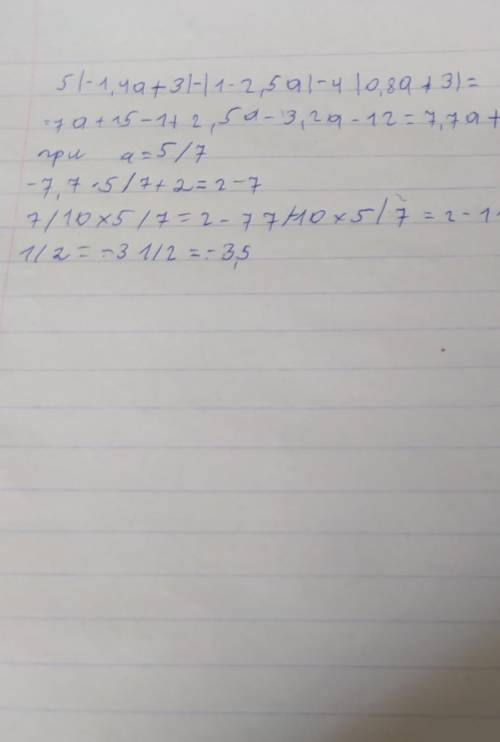 5|-1,4a+3|-|1-2,5a|-4|0,8a+3)=
=7a+15-1+2,5a-3,2a-12=7,7a+
при a=5/7
-7,7·5/7+2=2-7
7/10×5/7=2-77/10×5/7=2-11
1/2=-3 1/2=-3,5